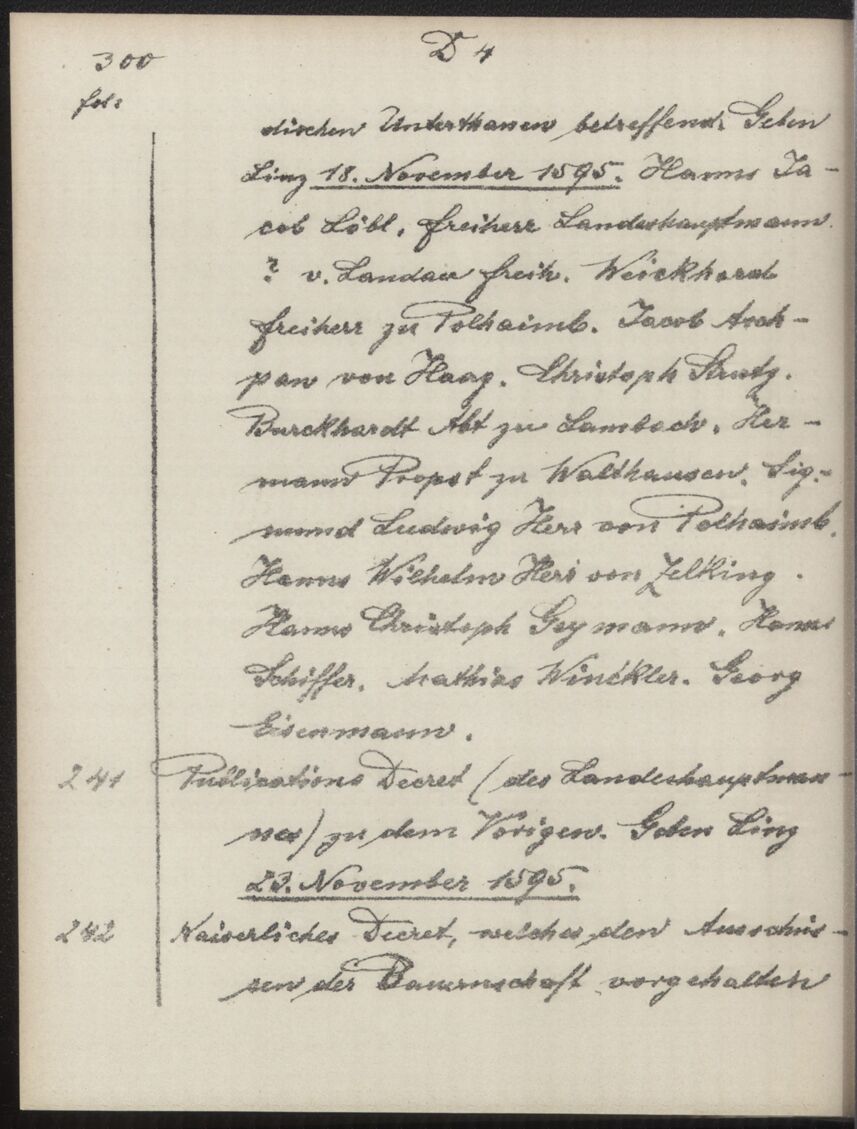 300 D 4
fol:
dischen Unterthanen betreffend. Geben
Linz 18. November 1595. Hanns Ja-
cob Löbl, freiherr Landeshauptmann.
? v. Landau freih. Weickhard
freiherr zu Polhaimb. Jacob Asch-
pan von Haag. Christoph Strutz.
Burckhardt Abt zu Lambach. Her-
mann Propst zu Walthausen. Sig-
mund Ludwig Herr von Polhaimb.
Hanns Wilhelm Herr von Zelking.
Hanns Christoph Geymann. Hanns
Schiffer. Mathias Winckler. Georg
Eisenmann.
241 Publications Decret (des Landeshauptman-
nes) zu dem Vorigen. Geben Linz
23. November 1595.
242 Kaiserliches Decret, welches den Ausschüs-
sen der Bauernschaft vorgehalten